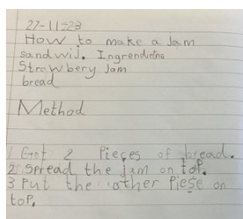 27-11-23
How to make a Jam
sandwij. Ingrendidns
Strowbery Jam
bread
Method
1. Got 2 Pieces of bread.
2. Spread the jam on toP.
3. Put the other Piese on
toP.